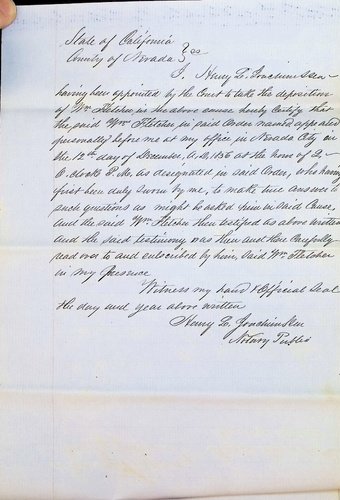 State of California
County of Nevada } ss
I, Henry L. Joachimsen
having been appointed by the Court to take the deposition
of Wm Fletcher in the above cause hereby Certify that
the said Wm Fletcher in said Order named appeared
personally before me at my office in Nevada City on
the 12th day of December, A.D. 1856 at the hour of 2
O clock P.M. as designated in said Order, who having
first been duly sworn by me, to make true answers to
such questions as might be asked him in said Cause,
and the said Wm Fletcher then testified as above written
and the said testimony was then and there Carefully
read over to and subscribed by him, said Wm Fletcher
in my presence
Witness my hand & Official Seal
the day and year above written
Henry L. Joachimsen
Notary Public